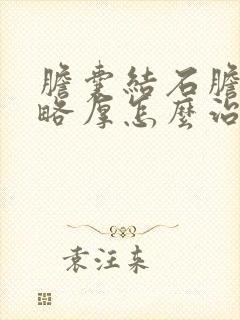 膽囊結石膽
略厚怎麼治
袁汪东